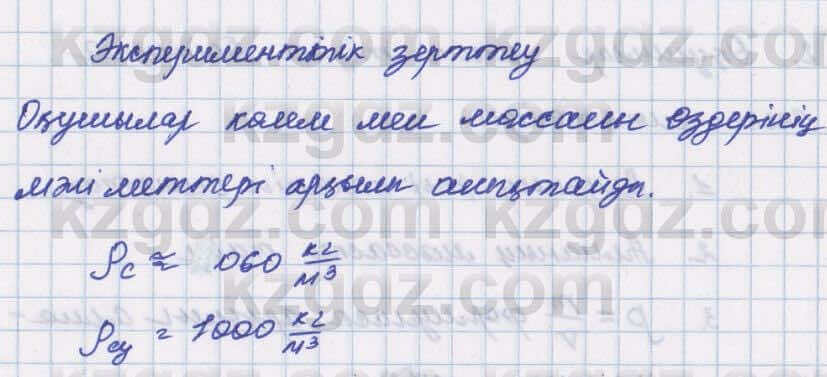 Эксперименттік зерттеу
Оқушылар көлем мен массаын өздерінің
мәліметтері арқылы анықтайды.
ρс ≈ 060 кг/м³
ρсу = 1000 кг/м³
kzgdz.com kzgdz.com
kzgdz.com kzgdz.com
kzgdz.com kzgdz.com
kzgdz.com